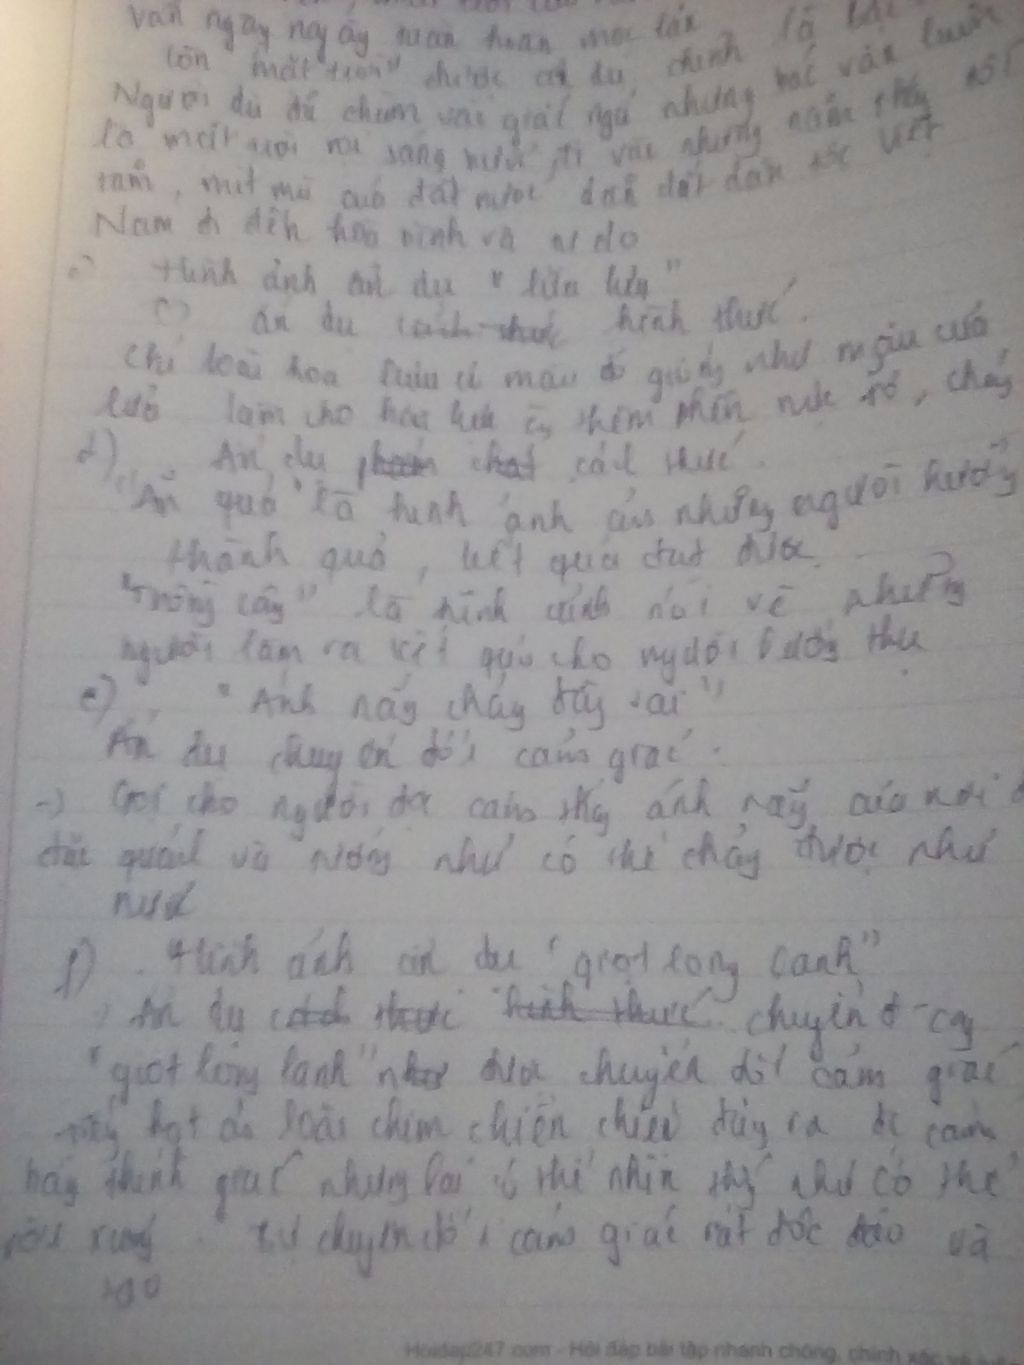 vẫn ngày ngày tuần hoàn mọc lặn là
Còn "mặt trời" được ẩn dụ chính là Bác
Người dù đã chìm vào giấc ngủ nhưng Bác vẫn luôn
là mặt trời rọi sáng nước ta vào những năm tháng
tăm, mịt mù của đất nước dẫn dắt dân tộc Việt
Nam đi đến hòa bình và tự do
Hình ảnh ẩn dụ "lửa lựu"
ẩn dụ cách thức hình thức.
Chỉ loài hoa lựu có màu đỏ giống như màu của
lửa làm cho hoa lựu càng thêm phần rực rỡ, cháy
d) Ẩn dụ phẩm chất cách thức.
"Ăn quả" là hình ảnh của những người hưởng
thành quả, kết quả đạt được
"Trồng cây" là hình ảnh nói về những
người làm ra kết quả cho người hưởng thụ
e) "Ánh nắng chảy đầy vai"
Ẩn dụ chuyển đổi cảm giác.
-> Gợi cho người đọc cảm thấy ánh nắng của nơi
đặc quánh và nóng như có thể chảy được như
nước
f) Hình ảnh ẩn dụ "giọt long lanh"
Ẩn dụ cách thức hình thức chuyển đ cg
"giọt long lanh" như được chuyển đổi cảm giác
tiếng hót của loài chim chiền chiện đây ra để cảm
bằng thính giác nhưng lại có thể nhìn thấy như có thể
rơi xuống. Sự chuyển đổi cảm giác rất độc đáo và
Hoidap247.com - Hỏi đáp bài tập nhanh chóng, chính xác